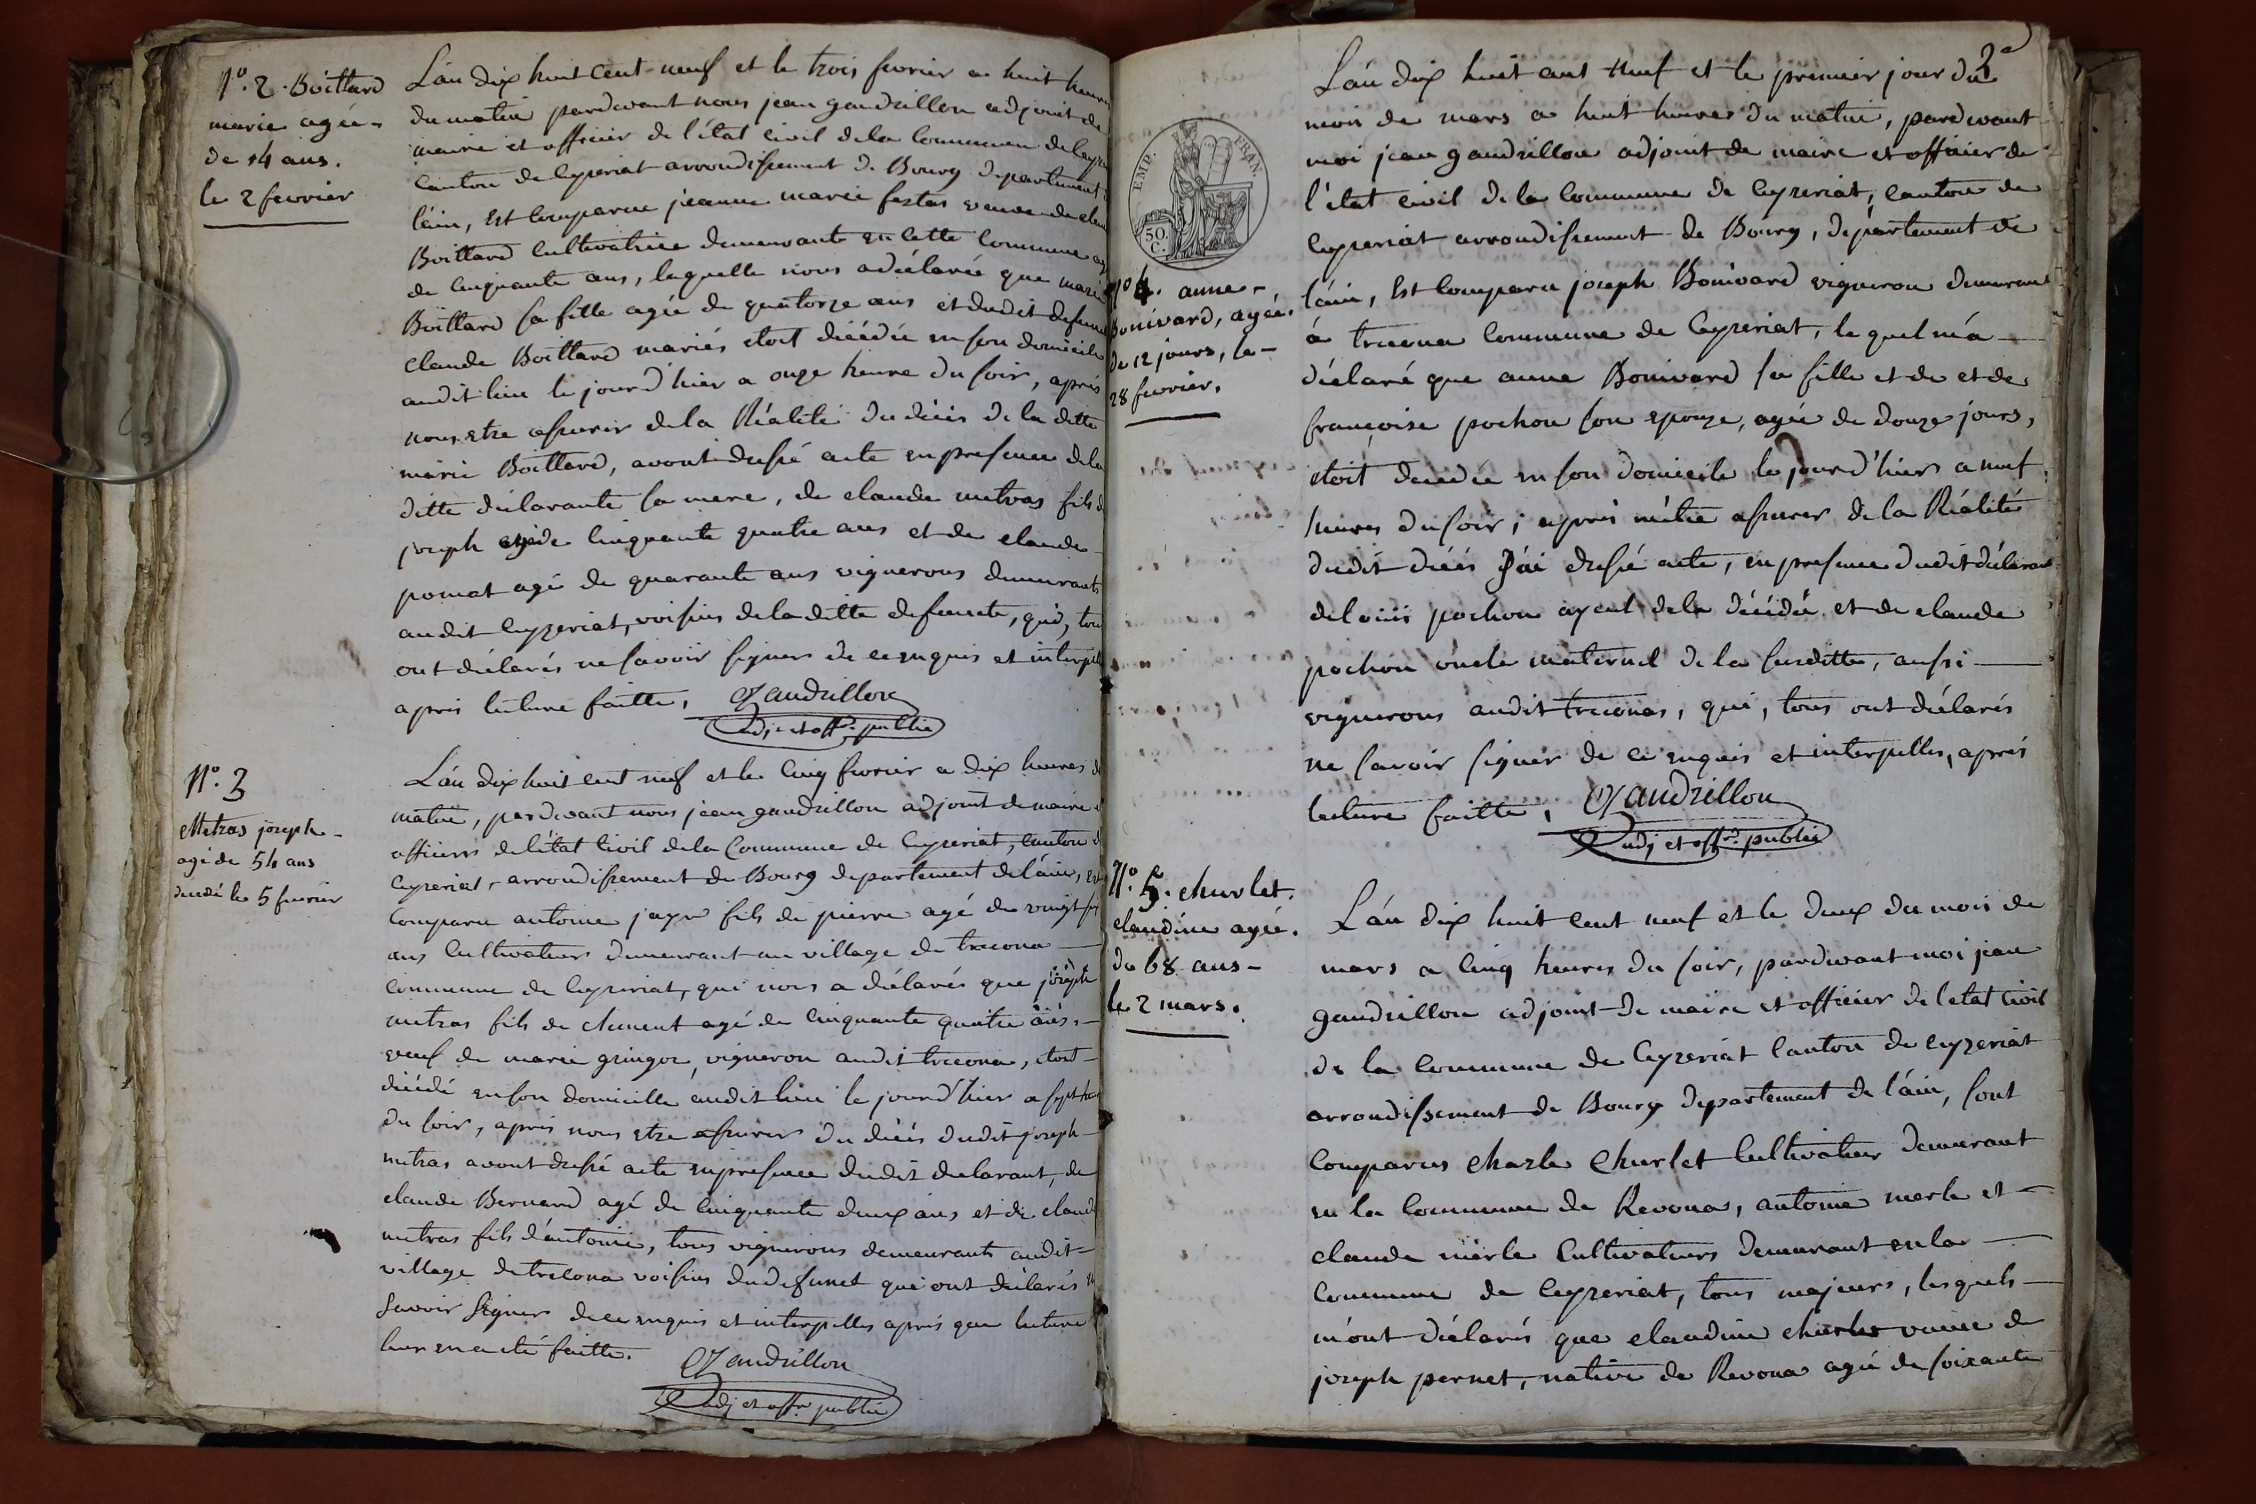 N.º 2. Boittard
marie agée
de 14 ans.
le 2 fevrier
L'an dix huit cent neuf et le trois fevrier a huit heures
du matin pardevant nous jean gandrillon adjoint de
maire et officier de l'état civil de la Commune de
Canton de Ceyzeriat arrondissement de Bourg departement
l'ain, Est Comparue jeanne marie festas veuve de
Boittard Cultivatrice demeurante en cette Commune
de Cinquante ans, laquelle nous a déclarée que marie
Boittard sa fille agée de quatorze ans et dudit defunt
claude Boittard mariés etoit décédée en son domicile
audit lieu le jour d'hier a onze heure du soir, aprés
nous etre assurer de la Réalité du décés de la ditte
marie Boittard, avont dressé acte en presence de la
ditte déclarante sa mere, de claude metras fils de
joseph agé de Cinquante quatre ans et de claude
pomat agé de quarante ans vignerons demeurants
audit Ceyzeriat, voisins de la ditte defuncte, qui, tous
ont déclarés ne savoir signer de ce enquis et
apres lecture faitte, Gandrillon
adj et offr. public
N.º 3
Metras joseph
agé de 54 ans
décédé le 5 fevrier
L'an dix huit cent neuf et le Cinq fevrier a dix heures
matin, pardevant nous jean gandrillon adjoint de maire
officiers de l'état Civil de la Commune de Ceyzeriat, Canton
Ceyzeriat arrondissement de Bourg departement de l'ain,
Comparu antoine jayr fils de pierre agé de vingt
ans Cultivateur demeurant au village de trecona
Commune de Ceyzeriat, qui nous a déclarés que joseph
metras fils de clement agé de Cinquante quatre ans,
veuf de marie gringoz, vigneron audit trecona, etoit
décédé en son domicille audit lieu le jour d'hier a sept
du soir, aprés nous etre assurer du décés dudit joseph
metras avont dressé acte en presence dudit declarant, de
claude Bernard agé de Cinquante deux ans et de claude
metras fils d'antoine, tous vignerons demeurants audit
village de trecona voisins du defunct qui ont déclarés
Savoir Signer de ce enquis et interpelles aprés que lecture
leur en a eté faitte. Gandrillon
adj et offr. public
3e
EMP. FRAN.
50 C.
N.º 4. anne
Bonivard, agée
de 12 jours, le
28 fevrier.
L'an dix huit cent neuf et le premier jour du
mois de mars a huit heures du matin, pardevant
moi jean gandrillon adjoint de maire et officier de
l'état civil de la Commune de Ceyzeriat, canton de
Ceyzeriat arrondissement de Bourg, département de
l'ain, Est Comparu joseph Bonivard vigneron demeurant
á trecona Commune de Ceyzeriat, le quel m'a
déclaré que anne Bonivard sa fille et de et de
françoise pochon son epouze, agée de douze jours,
etoit decedée en son domicile le jour d'hiers a neuf
heures du soir; aprés m'etre assurer de la Réalité
dudit décés J'ai dressé acte, en presence dudit déclarant
de loüis pochon ayeul de la décédée et de claude
pochon oncle maternel de la susditte, aussi
vignerons audit treconas, qui, tous ont déclarés
ne savoir signer de ce enquis et interpelles, aprés
lecture faitte, Gandrillon
adj et offr. public
N.º 5. churlet
claudine agée
de 68 ans
le 2 mars.
L'an dix huit cent neuf et le deux du mois de
mars a Cinq heures du soir, pardevant moi jean
gandrillon adjoint de maire et officier de l'etat civil
de la Commune de Ceyzeriat Canton de ceyzeriat
arrondissement de Bourg departement de l'ain, Sont
Comparus Charle Churlet Cultivateur demeurant
en la Commune de Revona, antoine merle et
claude merle Cultivateurs demeurant en la
Commune de Ceyzeriat, tous majeurs, lesquels
m'ont déclarés que claudine veuve de
joseph pernet, native de Revona agée de soixante